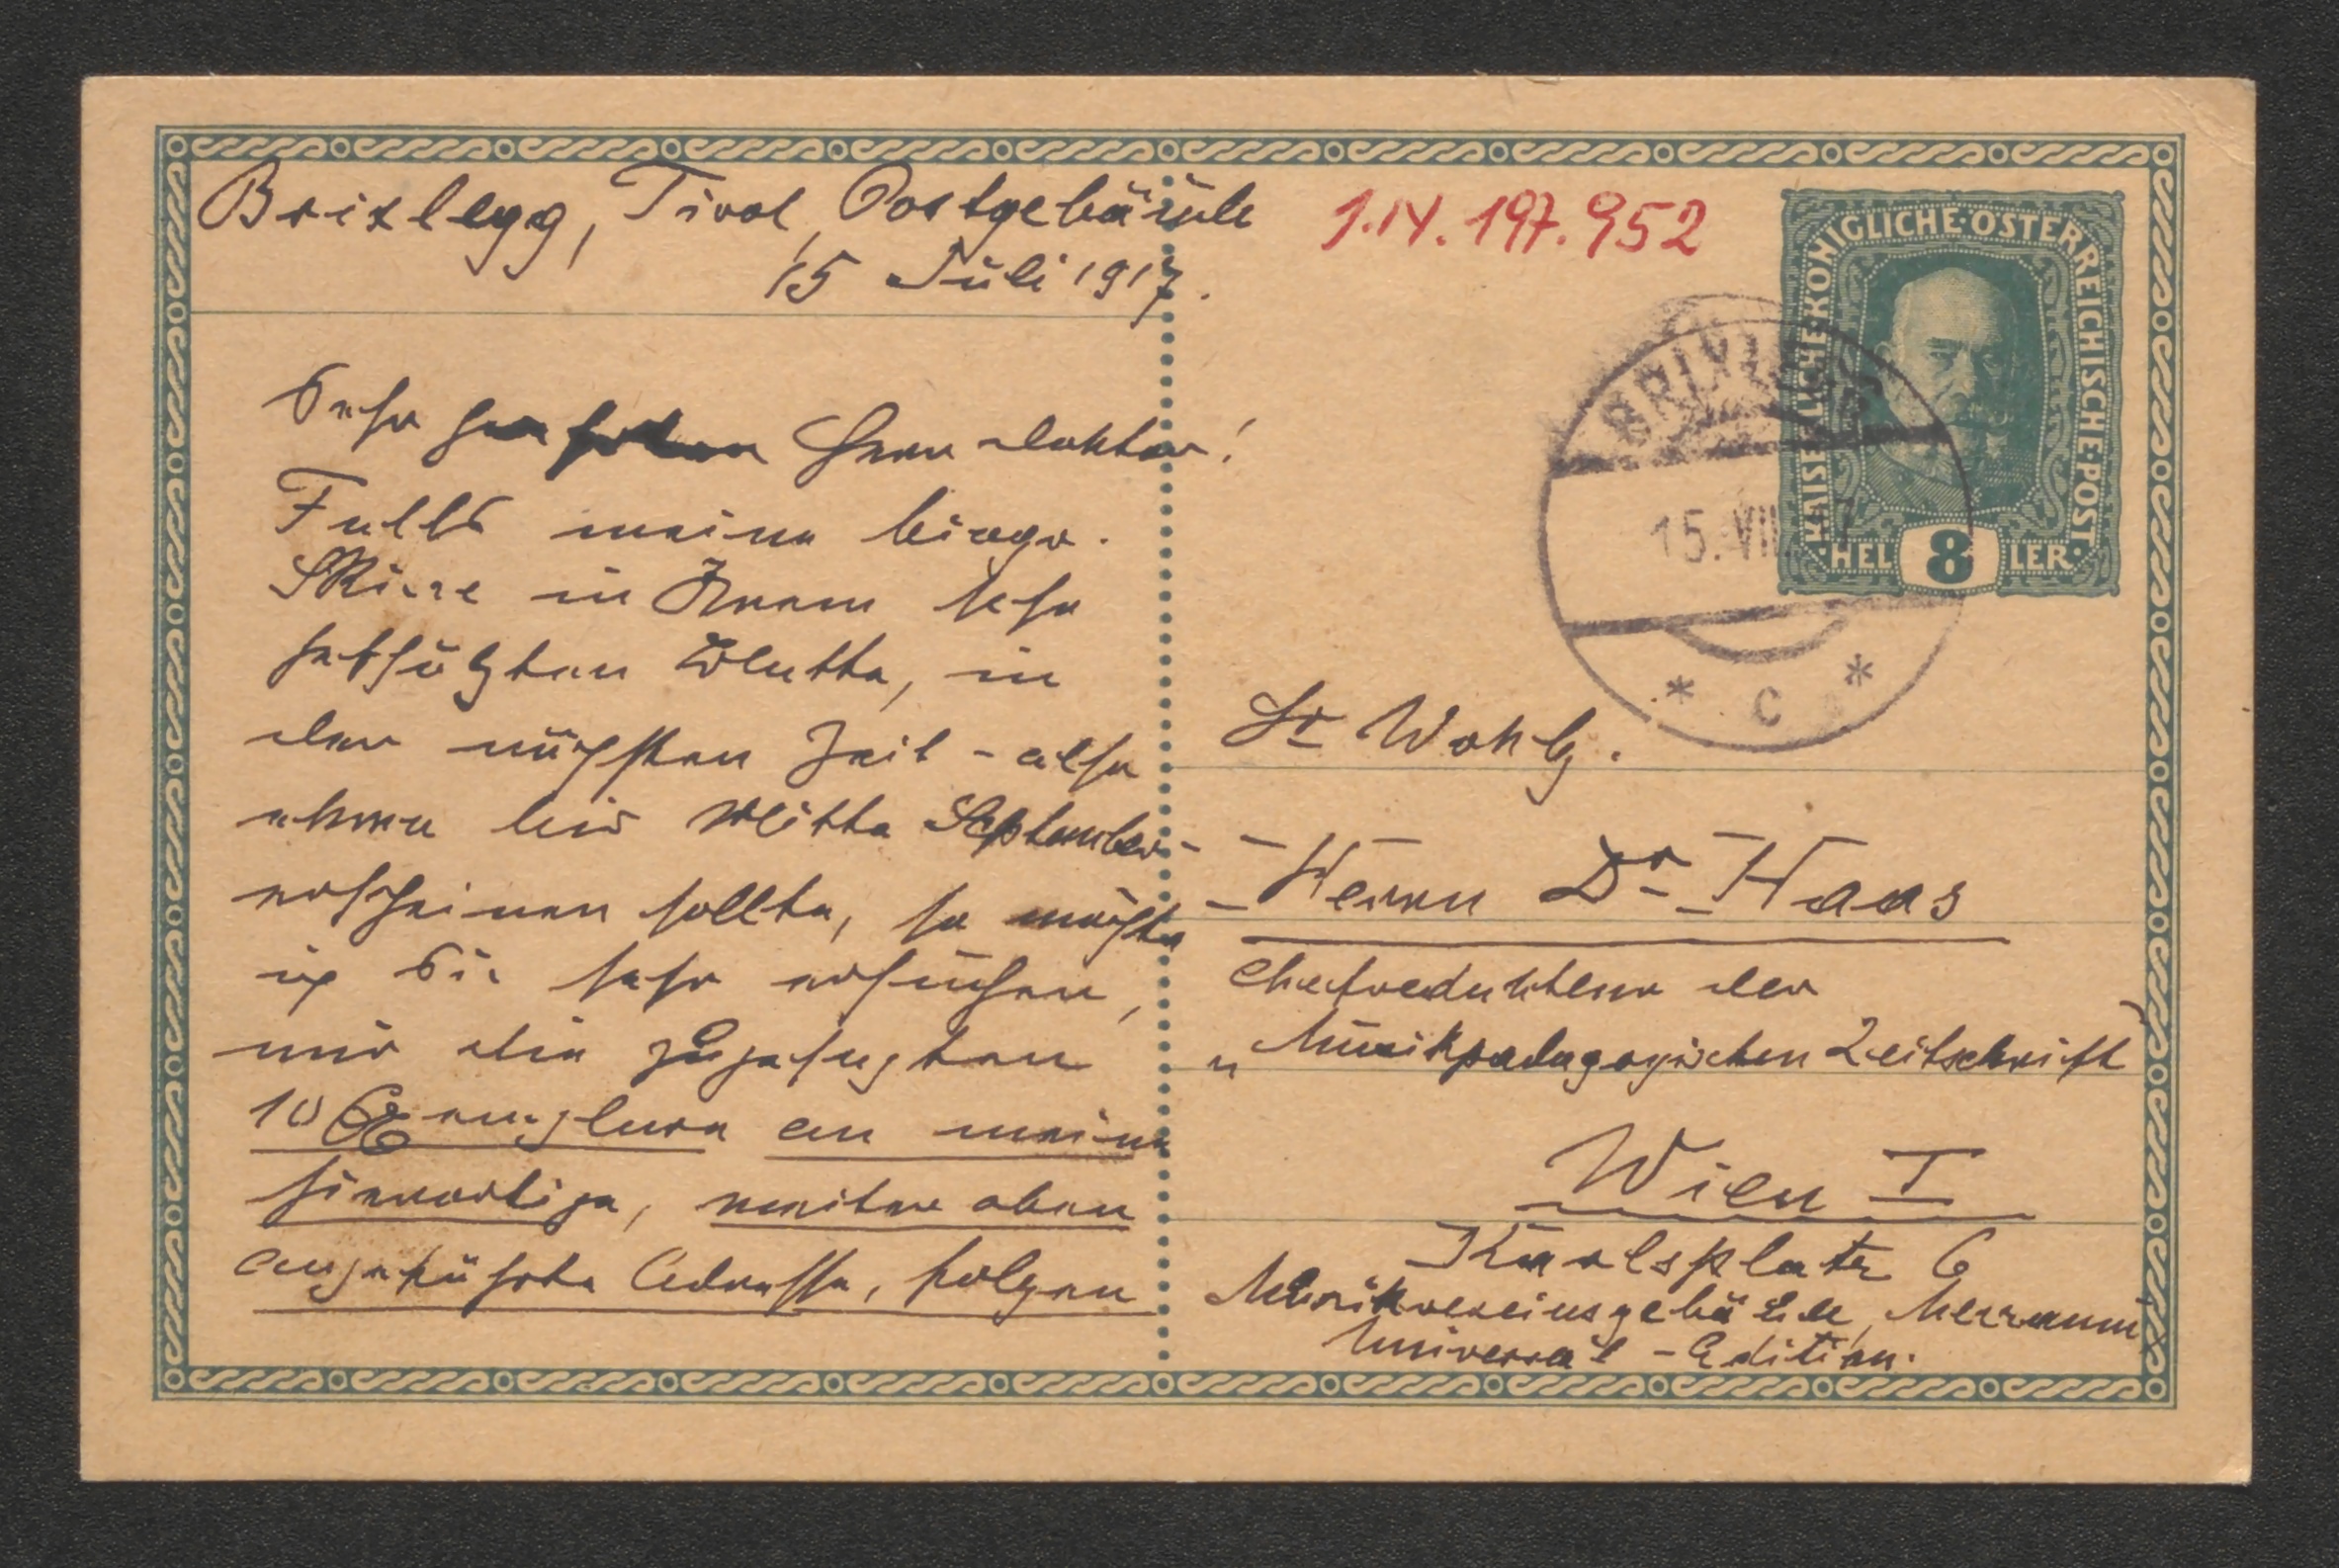 Brixlegg, Tirol, Postgebäude
15 Juli 1917.
Sehr Herr Doktor!
Falls meine biogr.
Skizze in Ihrem sehr
geschätzten Blatte, in
der nächsten Zeit - also
etwa bis Mitte September -
erscheinen sollte, so möchte
ich Sie sehr ersuchen,
mir die zugesagten
10 Exemplare an meine
hierortige, weiter oben
angeführte Adresse, folgen
I.N. 197.952
KAISERLICHE·KÖNIGLICHE·ÖSTERREICHISCHE·POST·
HEL 8 LER
BRIXLEGG
15.VII.17
* C *
Sr Wohlg.
Herrn Dr Haas
Chefredakteur der
„Musikpädagogischen Zeitschrift"
Wien I
Karlsplatz 6
Musikvereinsgebäude, Mezzanin
Universal-Edition.